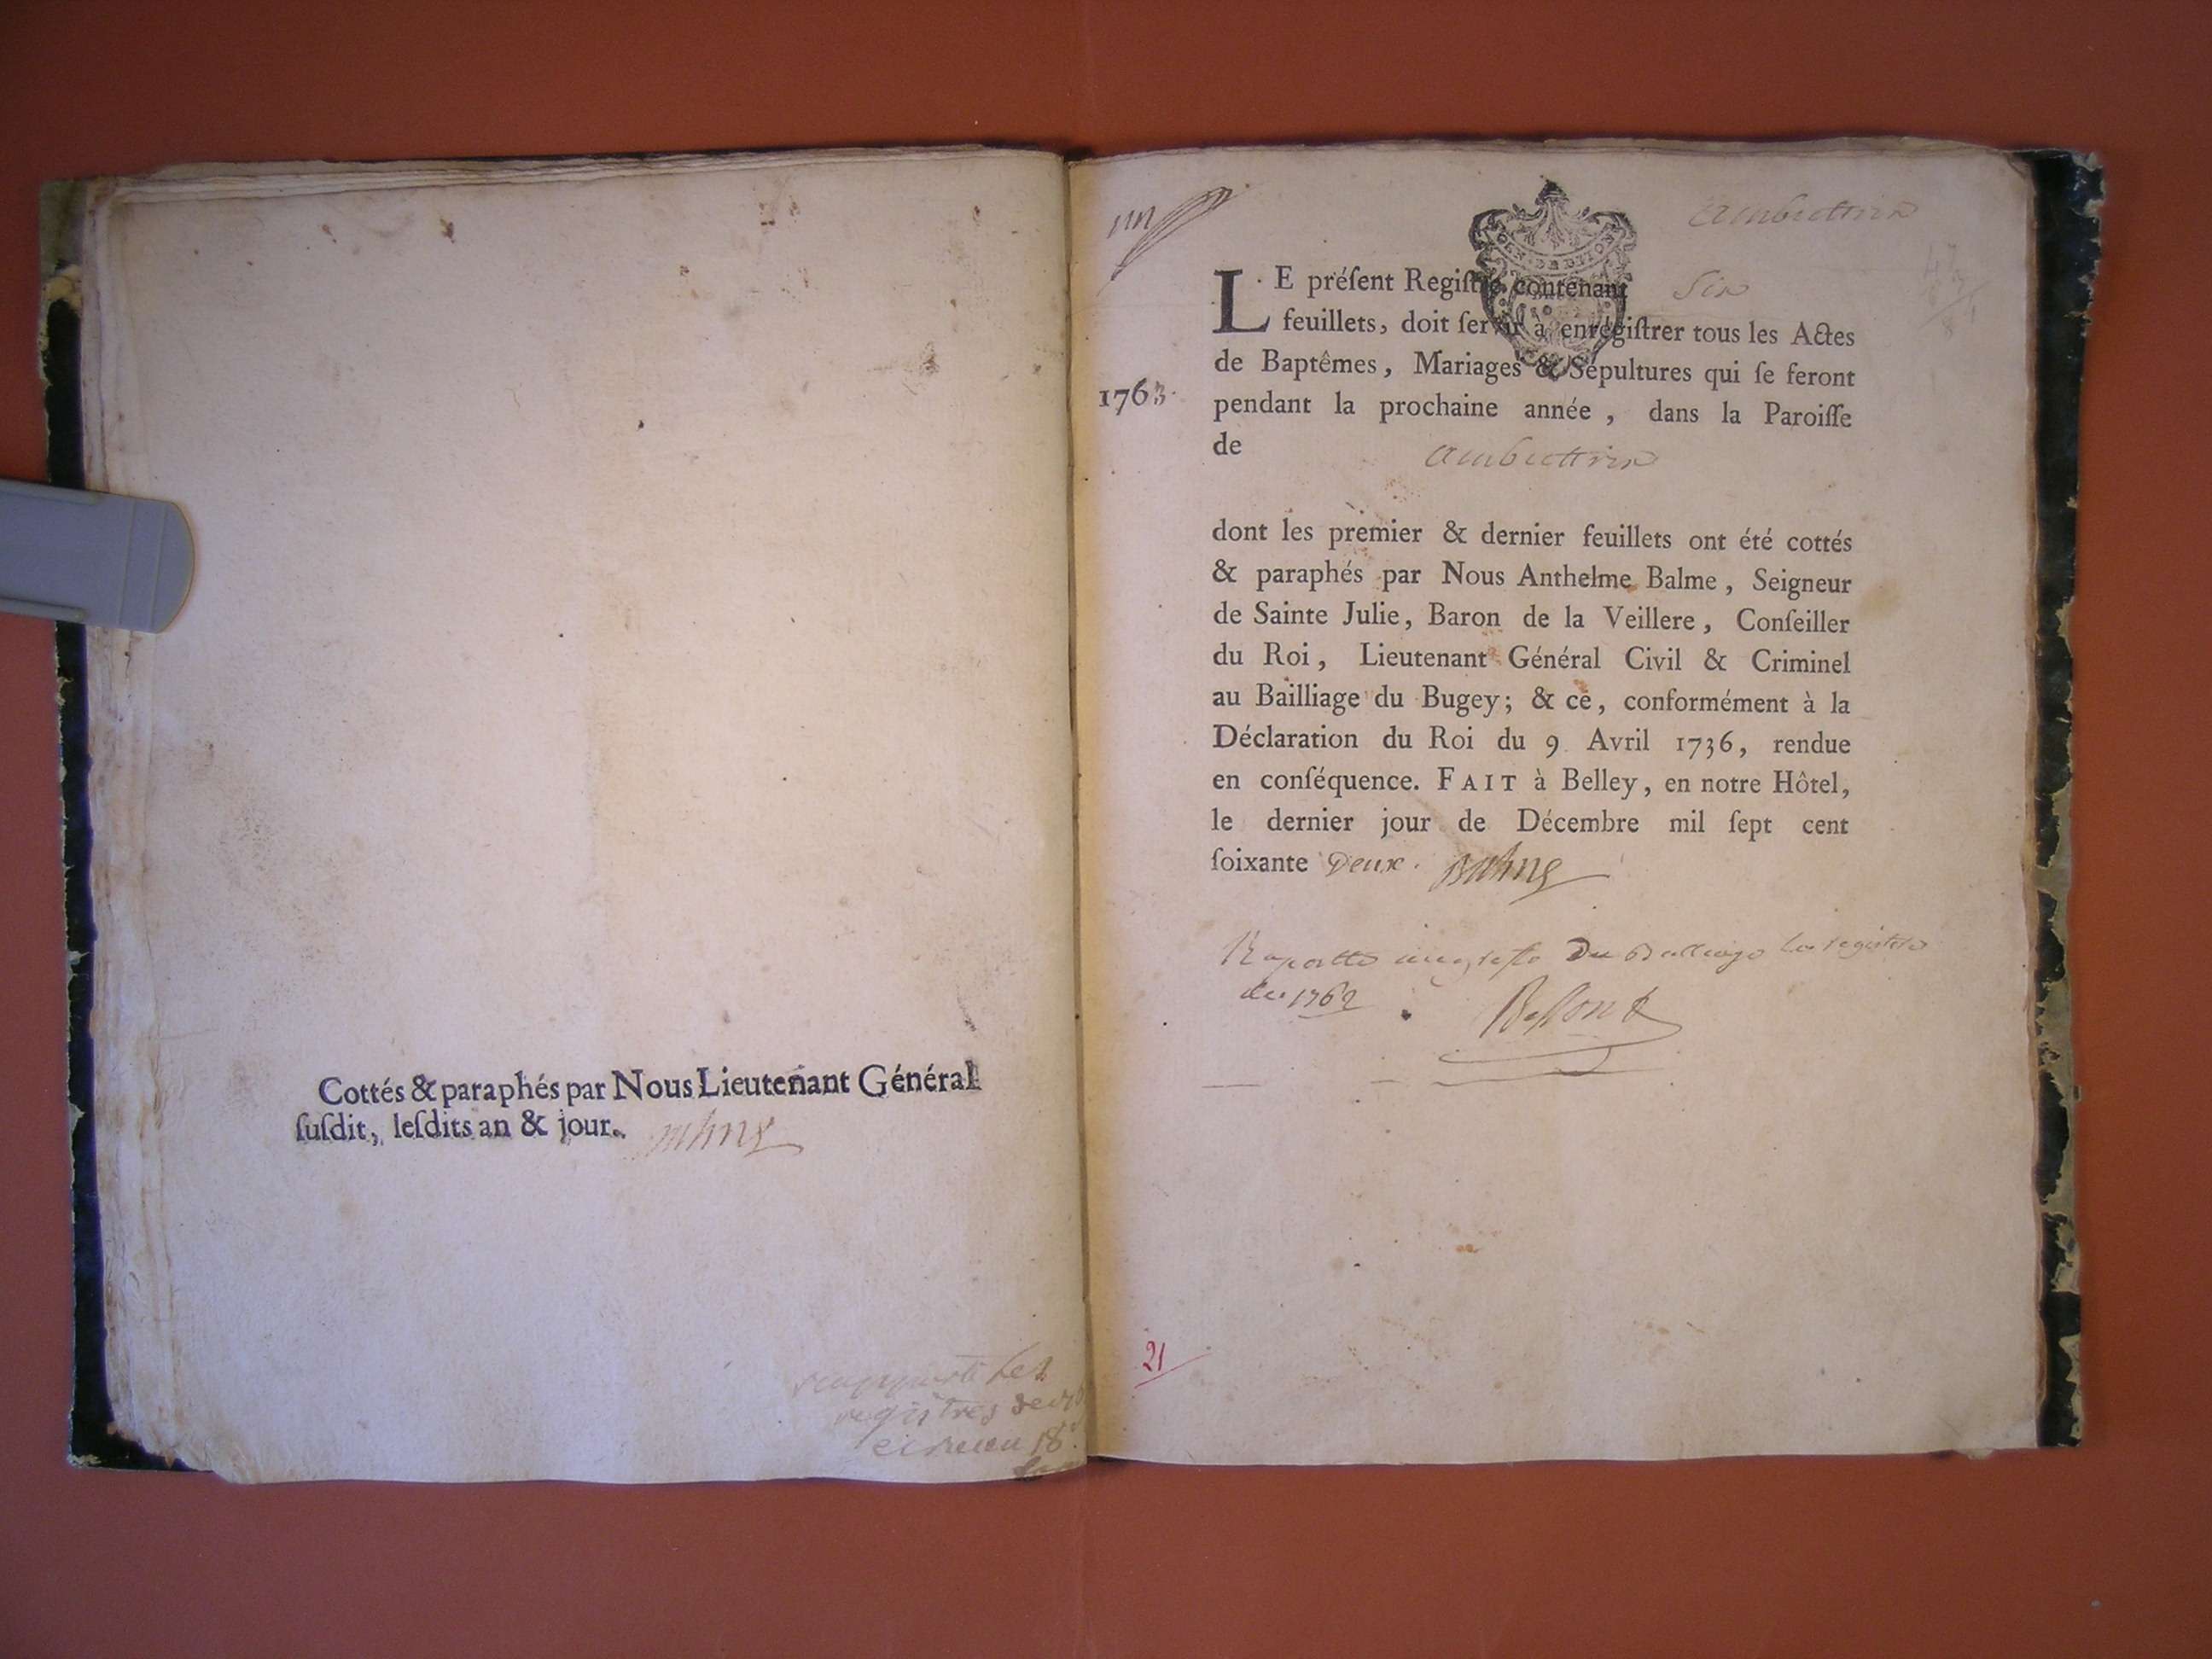 Cottés & paraphés par Nous Lieutenant Général
ſuſdit, leſdits an & jour.
les
registres
un
Ambuttrix
GEN. DE DIJON
LE préſent Regiſtre contenant Six
feuillets, doit ſervir à enrégiſtrer tous les Actes
de Baptêmes, Mariages & Sépultures qui ſe feront
1763. pendant la prochaine année, dans la Paroiſſe
de Ambuttrix
dont les premier & dernier feuillets ont été cottés
& paraphés par Nous Anthelme Balme, Seigneur
de Sainte Julie, Baron de la Veillere, Conſeiller
du Roi, Lieutenant Général Civil & Criminel
au Bailliage du Bugey; & ce, conformément à la
Déclaration du Roi du 9 Avril 1736, rendue
en conſéquence. FAIT à Belley, en notre Hôtel,
le dernier jour de Décembre mil ſept cent
ſoixante Deux. Balme
Du Balliage les registres
de 1762
21